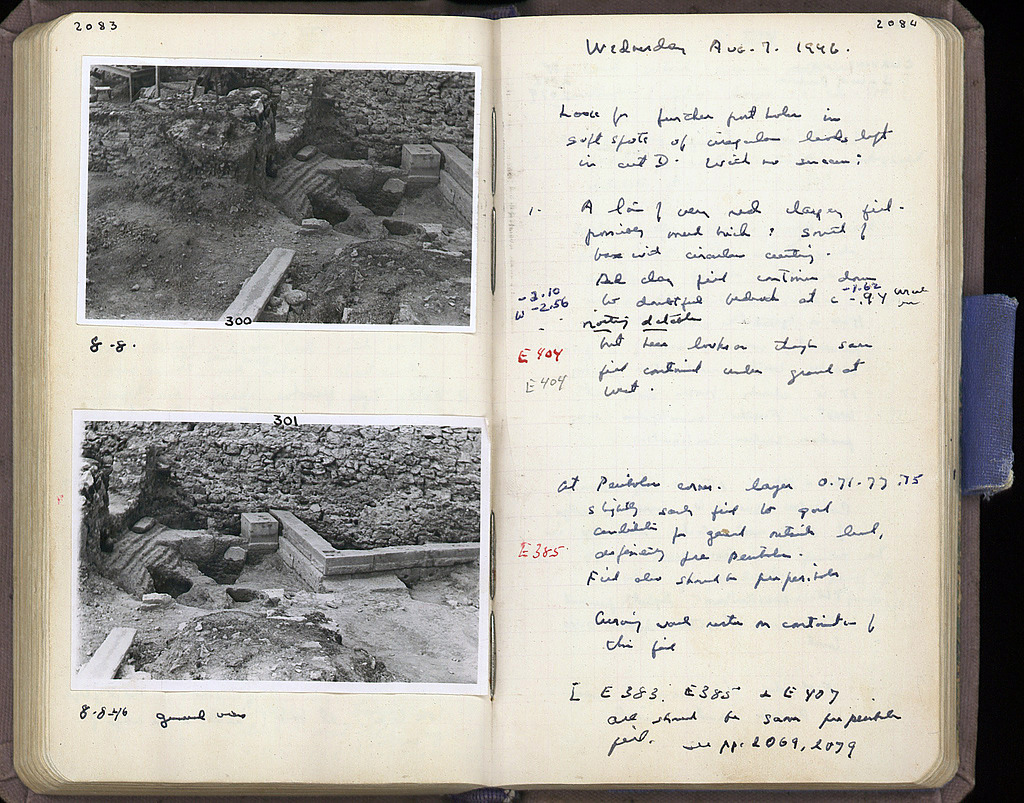 2083
300
8-8.
301
8-8-46 general view
2084
Wednesday Aug. 7. 1946.
Look for further post holes in
soft spots of irregular levels left
in cut D. With no success:
1. A lot of very red clayey fill -
possibly mud brick? South of
base with circular cutting.
Red clay fill continues down
-2.10
W -2.56
to doubtful bedrock at c -1.62 -.94
E 404
but here looks as though same
E 404
fill continued under ground at
west.
At Peribolos corner. layer 0.71-.77 .75
slightly sandy fill to good
for ground outside level,
E 385
pre Peribolos.
Fill also should be pre peribolos
wall rests on continuation of
this fill
[ E 383, E 385 & E 407
all should be same pre peribolos
fill. see pp. 2069, 2079